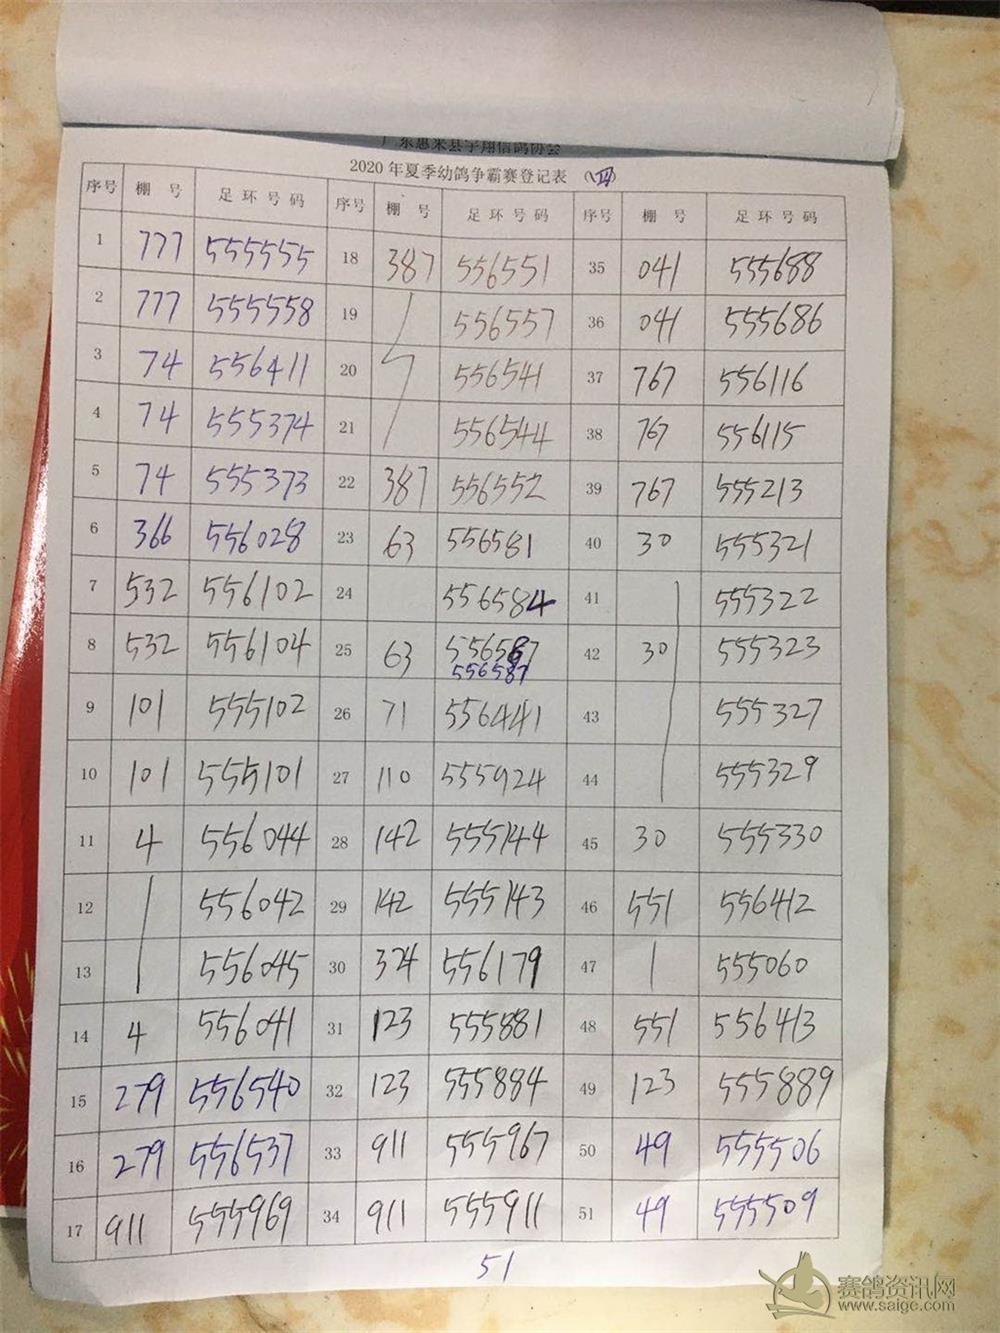 广东惠来县宇翔信鸽协会
2020年夏季幼鸽争霸赛登记表 (四)
序号 棚号 足环号码 序号 棚号 足环号码 序号 棚号 足环号码
1 777 555555 18 387 556551 35 041 555688
2 777 555558 19 556557 36 041 555686
3 74 556411 20 556541 37 767 556116
4 74 555374 21 556544 38 767 556115
5 74 555373 22 387 556552 39 767 555213
6 366 556028 23 63 556581 40 30 555321
7 532 556102 24 556584 41 555322
8 532 556104 25 63 556587 42 30 555323
556587
9 101 555102 26 71 556441 43 555327
10 101 555101 27 110 555924 44 555329
11 4 556044 28 142 555144 45 30 555330
12 556042 29 142 555143 46 551 556412
13 556045 30 324 556179 47 555060
14 4 556041 31 123 555881 48 551 556413
15 279 556540 32 123 555884 49 123 555889
16 279 556537 33 911 555967 50 49 555506
17 911 555969 34 911 555911 51 49 555509
51
赛鸽资讯网
www.saige.com